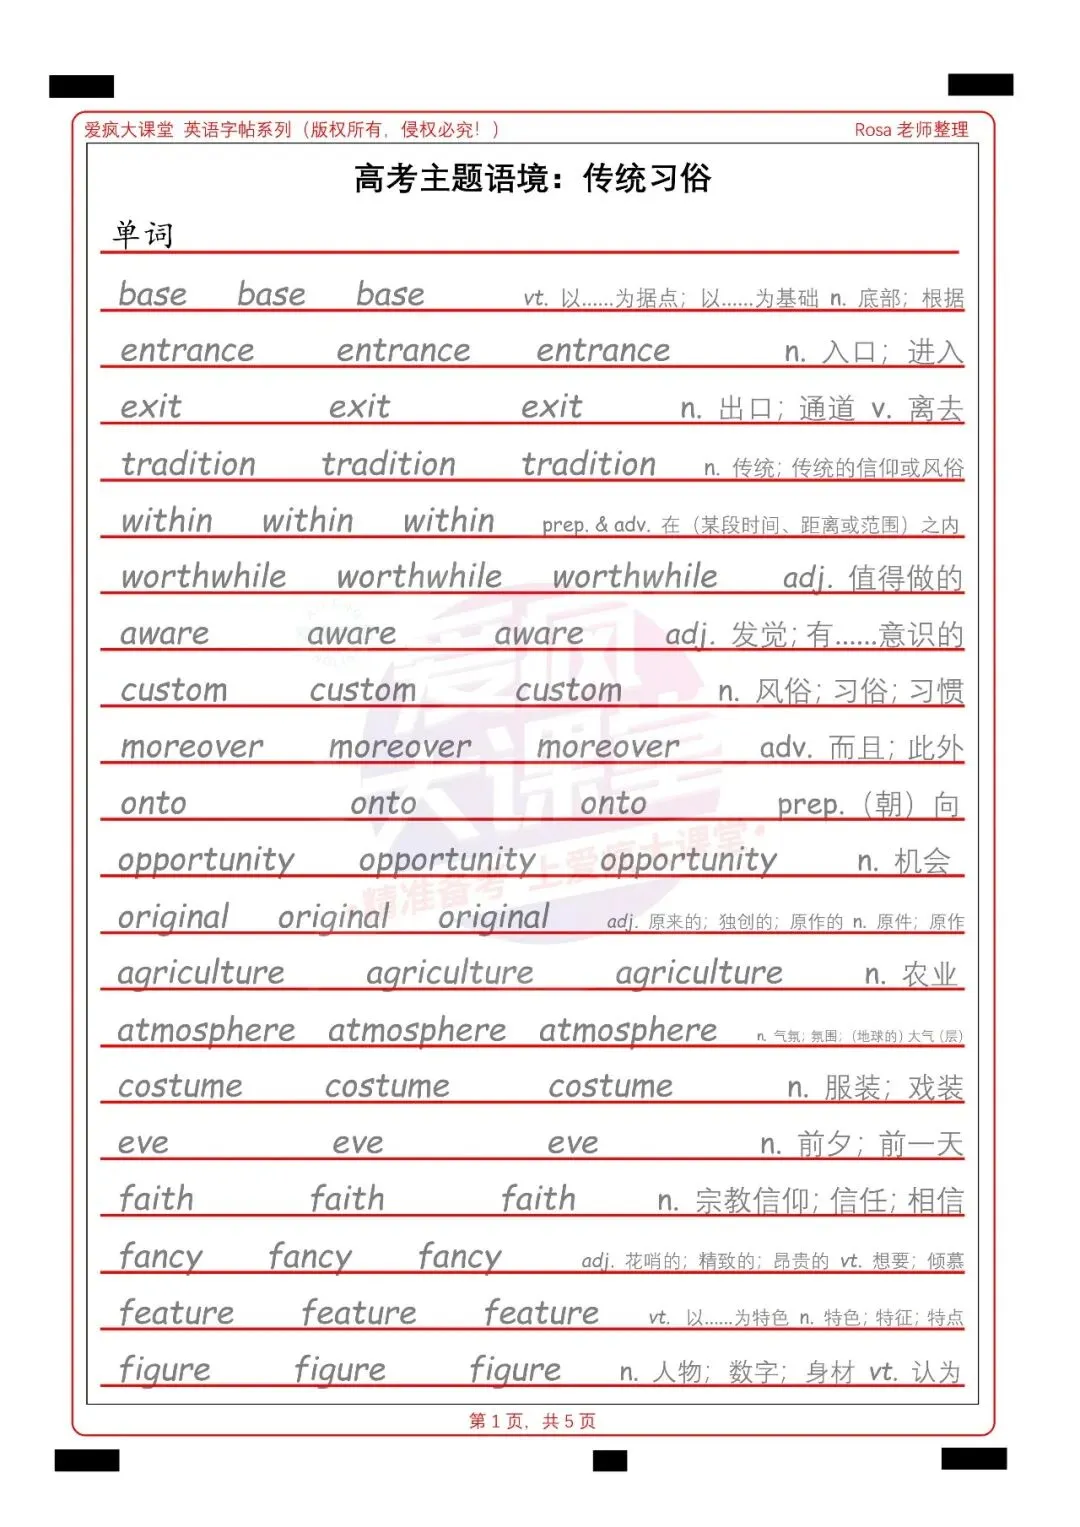 爱疯大课堂 英语字帖系列（版权所有，侵权必究！） Rosa 老师整理
高考主题语境：传统习俗
单词
base base base vt. 以……为据点；以……为基础 n. 底部；根据
entrance entrance entrance n. 入口；进入
exit exit exit n. 出口；通道 v. 离去
tradition tradition tradition n. 传统；传统的信仰或风俗
within within within prep. & adv. 在（某段时间、距离或范围）之内
worthwhile worthwhile worthwhile adj. 值得做的
aware aware aware adj. 发觉；有……意识的
custom custom custom n. 风俗；习俗；习惯
moreover moreover moreover adv. 而且；此外
onto onto onto prep.（朝）向
opportunity opportunity opportunity n. 机会
original original original adj. 原来的；独创的；原作的 n. 原件；原作
agriculture agriculture agriculture n. 农业
atmosphere atmosphere atmosphere n. 气氛；氛围；（地球的）大气（层）
costume costume costume n. 服装；戏装
eve eve eve n. 前夕；前一天
faith faith faith n. 宗教信仰；信任；相信
fancy fancy fancy adj. 花哨的；精致的；昂贵的 vt. 想要；倾慕
feature feature feature vt. 以……为特色 n. 特色；特征；特点
figure figure figure n. 人物；数字；身材 vt. 认为
爱疯
大课堂
·精准备考 上爱疯大课堂·
第 1 页，共 5 页